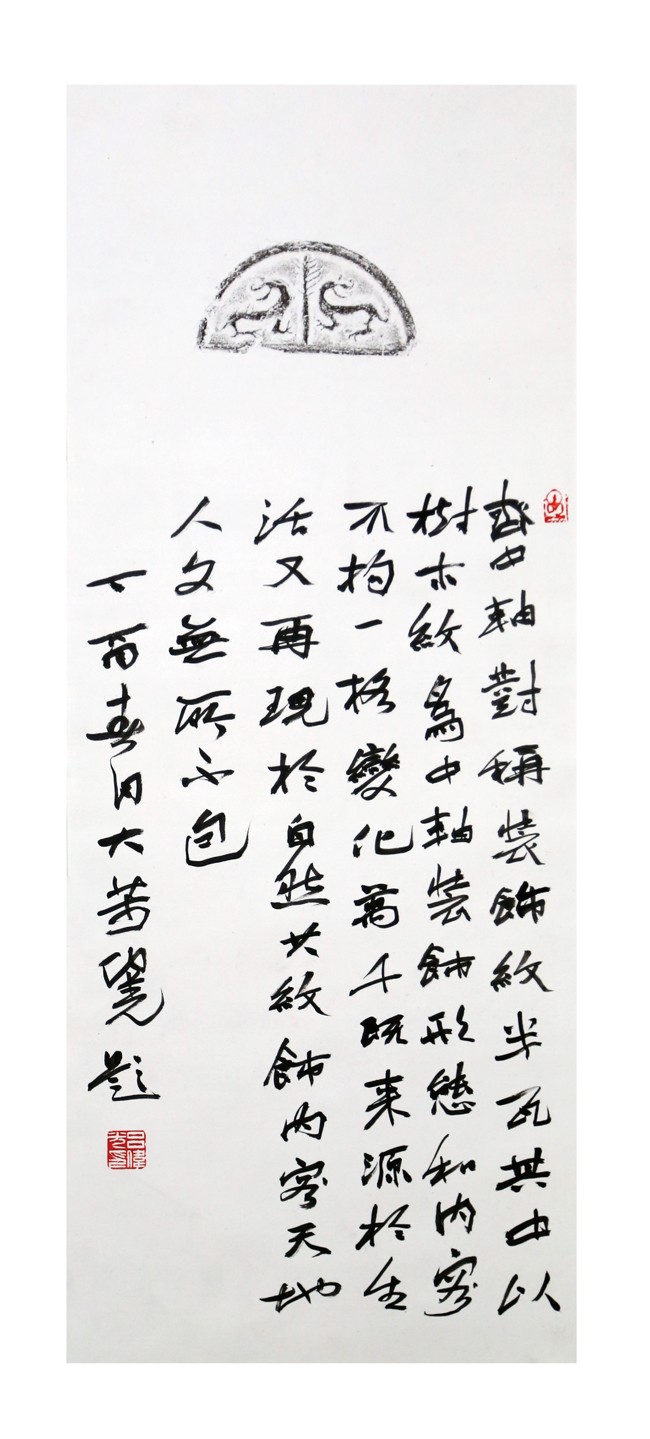 齊中軸對稱裝飾紋半瓦其中以
樹木紋爲中軸裝飾形態和內容
不拘一格變化萬千既来源於生
活又再現於自然其紋飾內容天地
人文無所不包
丁酉春月大題